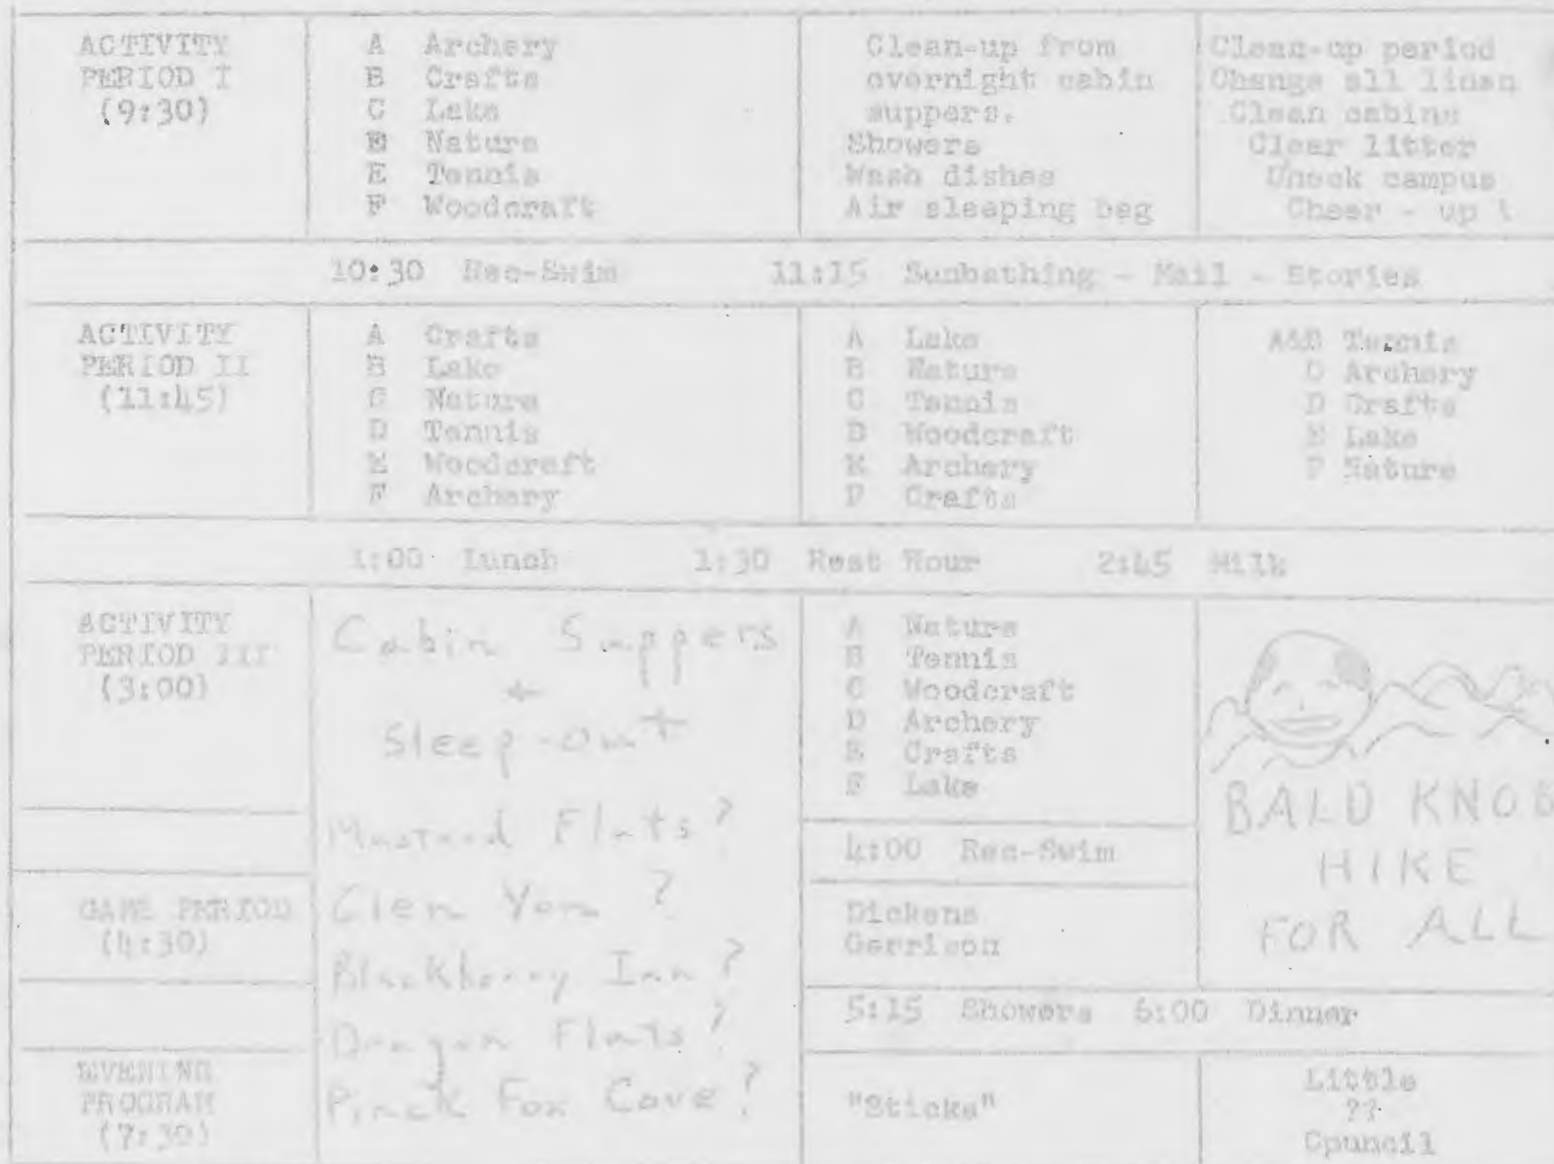 ACTIVITY
PERIOD I
(9:30)
A Archery
B Crafts
C Lake
D Nature
E Tennis
F Woodcraft
Clean-up from
overnight cabin
suppers.
Showers
Wash dishes
Air sleeping bag
Clean-up period
Change all linen
Clean cabins
Clear litter
Check campus
Cheer - up !
10:30 Rec-Swim 11:15 Sunbathing - Mail - Stories
ACTIVITY
PERIOD II
(11:45)
A Crafts
B Lake
C Nature
D Tennis
E Woodcraft
F Archery
A Lake
B Nature
C Tennis
D Woodcraft
E Archery
F Crafts
A&B Tennis
C Archery
D Crafts
E Lake
F Nature
1:00 Lunch 1:30 Rest Hour 2:45 Milk
ACTIVITY
PERIOD III
(3:00)
Cabin Suppers
+
Sleep-out
Mustard Flats?
Glen Yon?
Blackberry Inn?
Dragon Flats?
Pinck Fox Cove?
A Nature
B Tennis
C Woodcraft
D Archery
E Crafts
F Lake
BALD KNOB
HIKE
FOR ALL
4:00 Rec-Swim
GAME PERIOD
(4:30)
Dickens
Garrison
5:15 Showers 6:00 Dinner
EVENING
PROGRAM
(7:30)
"Sticks"
Little
??
Cpuncil